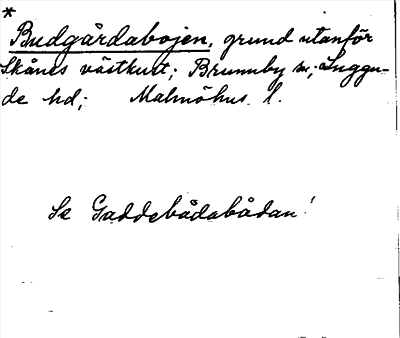 *
Budgårdabojen, grund utanför
Skånes västkust; Brunnby sn; Luggu-
de hd; Malmöhus l.
Se Gaddebådabådan!